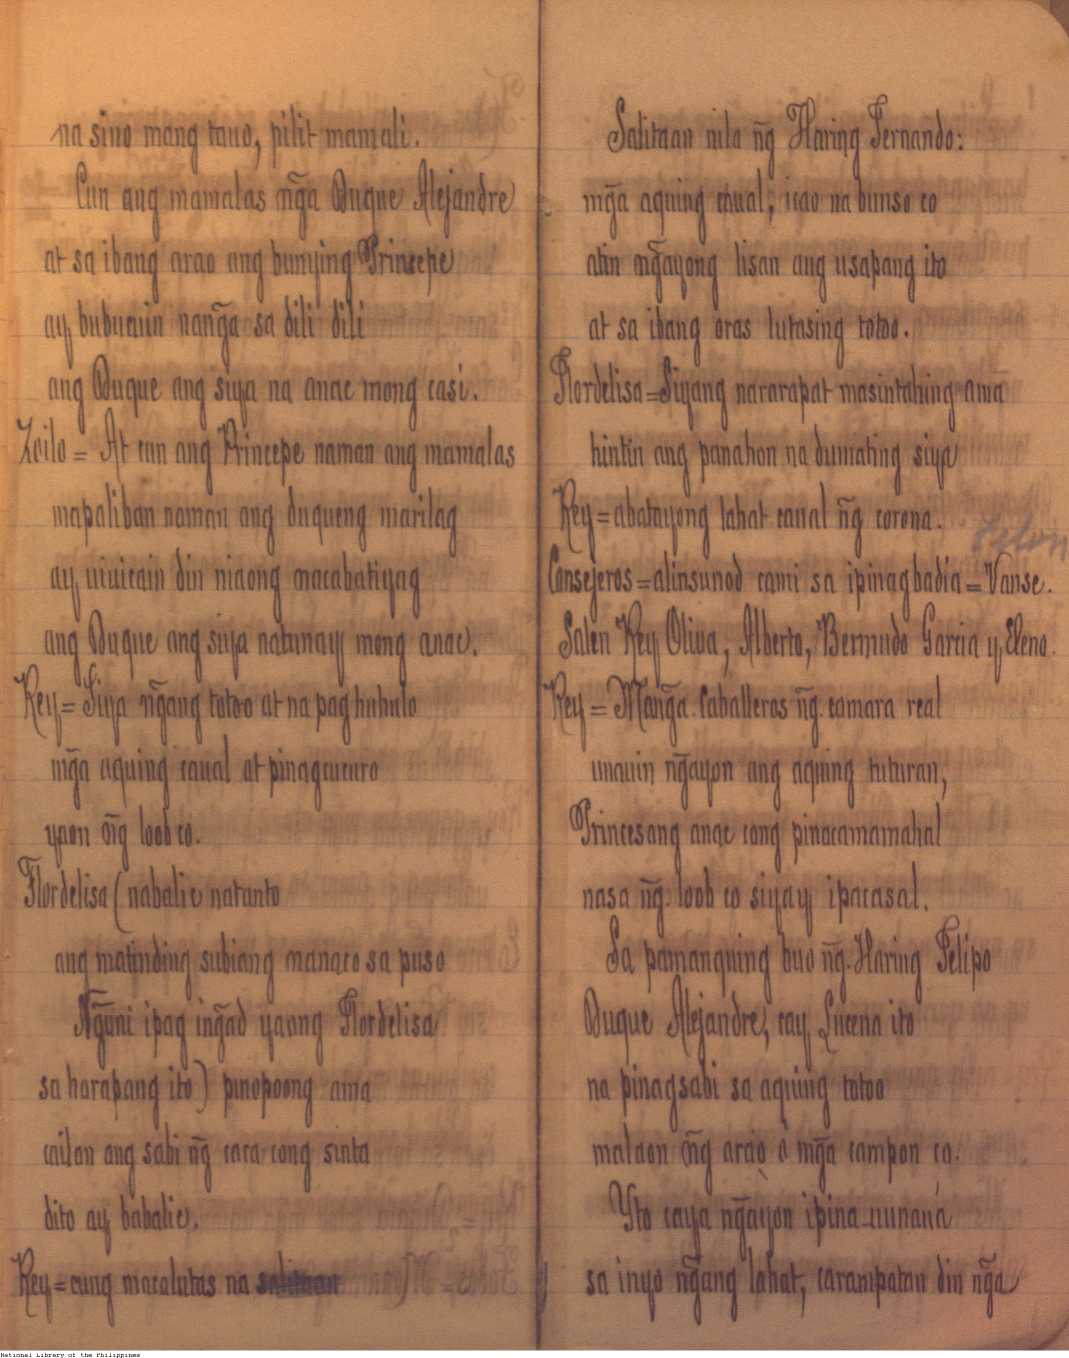 na sino mang tauo, pilit mamali.
Cun ang mamalas ng̃a Duque Alejandre
at sa ibang arao ang bunying Princepe
ay bubucuin nang̃a sa dili dili
ang Duque ang siya na anac mong casi.
Zoilo = At cun ang Princepe naman ang mamalas
mapaliban naman ang duqueng marilag
ay uiuicain din niaong macabatiyag
ang Duque ang siya natunay mong anac.
Rey = Siya ng̃ang totoo at na pag huhulo
mg̃a aquing caual at pinagcucuro
yaon ng̃ loob co.
Flordelisa (nabalic natanto
ang matinding subiang manaco sa puso
Ng̃uni ipag ing̃ad yaang Flordelisa
sa harapang ito) pinopoong ama
cailan ang sabi ng̃ caca cong sinta
dito ay babalic.
Rey = cung macalutas na
Salitaan nila ng̃ Haring Fernando:
mg̃a aquing caual, icao na bunso co
atin ng̃ayong lisan ang usapang ito
at sa ibang oras lutasing totoo.
Flordelisa = Siyang nararapat masintahing ama
hintin ang panahon na dumating siya
Rey = abatayong lahat caual ng̃ corona.
Consejeros = alinsunod cami sa ipinagbadia = Vanse.
Salen Rey Oliva, Alberto, Bermudo Garcia y Eleno.
Rey = Mang̃a Caballeros ng̃ camara real
unauin ng̃ayon ang aquing tuturan,
Princesang anac cong pinacamamahal
nasa ng̃ loob co siyay ipacasal.
Sa pamanquing buo ng̃ Haring Felipo
Duque Alejandre, cay Lucena ito
na pinagsabi sa aquing totoo
malaon ng̃ arao ò mg̃a campon co.
Yto caya ng̃ayon ipina-uunaua
sa inyo ng̃ang lahat, carampatan din ng̃a
National Library of the Philippines